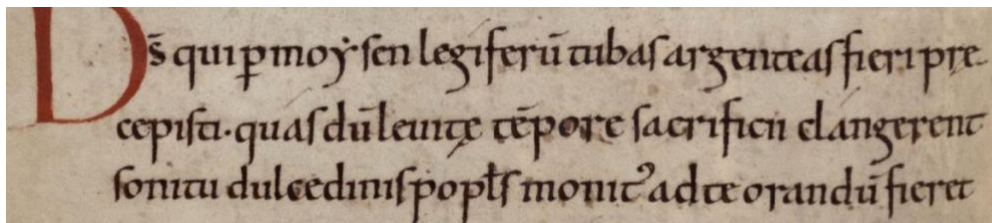 Ds̄ qui p̲ moẏsen legiferū tubas argenteas fieri pre-
cepisti· quas dū leuitę tēpore sacrificii clangerent
sonitu dulcedinis popl̄s monit᾽ ad te orandū fieret